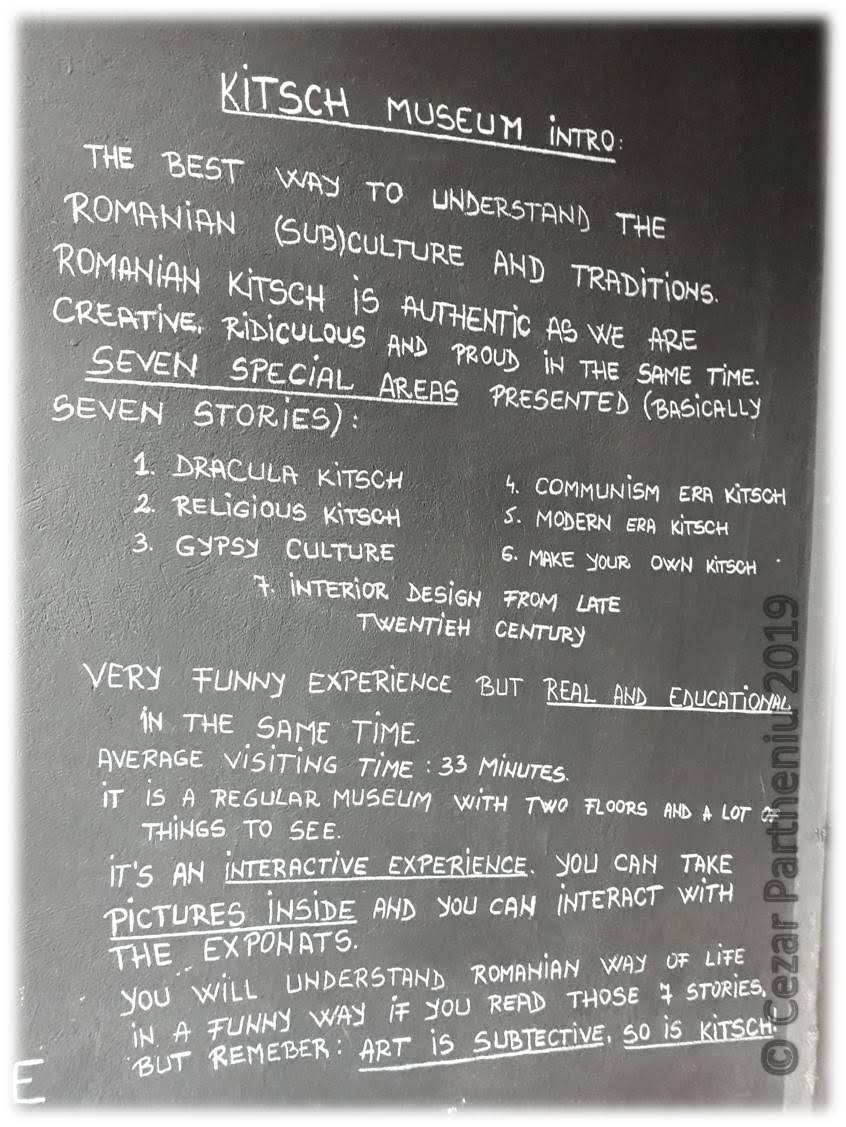 KiTSCH MUSEUM iNTRO:
THE BEST WAY TO UNDERSTAND THE
ROMANiAN (SUB)CULTURE AND TRADiTiONS.
ROMANiAN KiTSCH iS AUTHENTiC AS WE ARE
CREATiVE, RiDiCULOUS AND PROUD iN THE SAME TiME.
SEVEN SPECiAL AREAS PRESENTED (BASiCALLY
SEVEN STORiES):
1. DRACULA KiTSCH
2. RELiGiOUS KiTSCH
3. GYPSY CULTURE
4. COMMUNiSM ERA KiTSCH
5. MODERN ERA KiTSCH
6. MAKE YOUR OWN KiTSCH
7. iNTERiOR DESiGN FROM LATE
TWENTiEH CENTURY
VERY FUNNY EXPERiENCE BUT REAL AND EDUCATiONAL
iN THE SAME TiME.
AVERAGE ViSiTiNG TiME: 33 MiNUTES.
iT iS A REGULAR MUSEUM WiTH TWO FLOORS AND A LOT OF
THiNGS TO SEE.
iT'S AN iNTERACTiVE EXPERiENCE. YOU CAN TAKE
PiCTURES iNSiDE AND YOU CAN iNTERACT WiTH
THE EXPONATS.
YOU WiLL UNDERSTAND ROMANiAN WAY OF LiFE
iN A FUNNY WAY iF YOU READ THOSE 7 STORiES,
BUT REMEBER: ART iS SUBTECTiVE, SO iS KiTSCH.
E
© Cezar Partheniu 2019